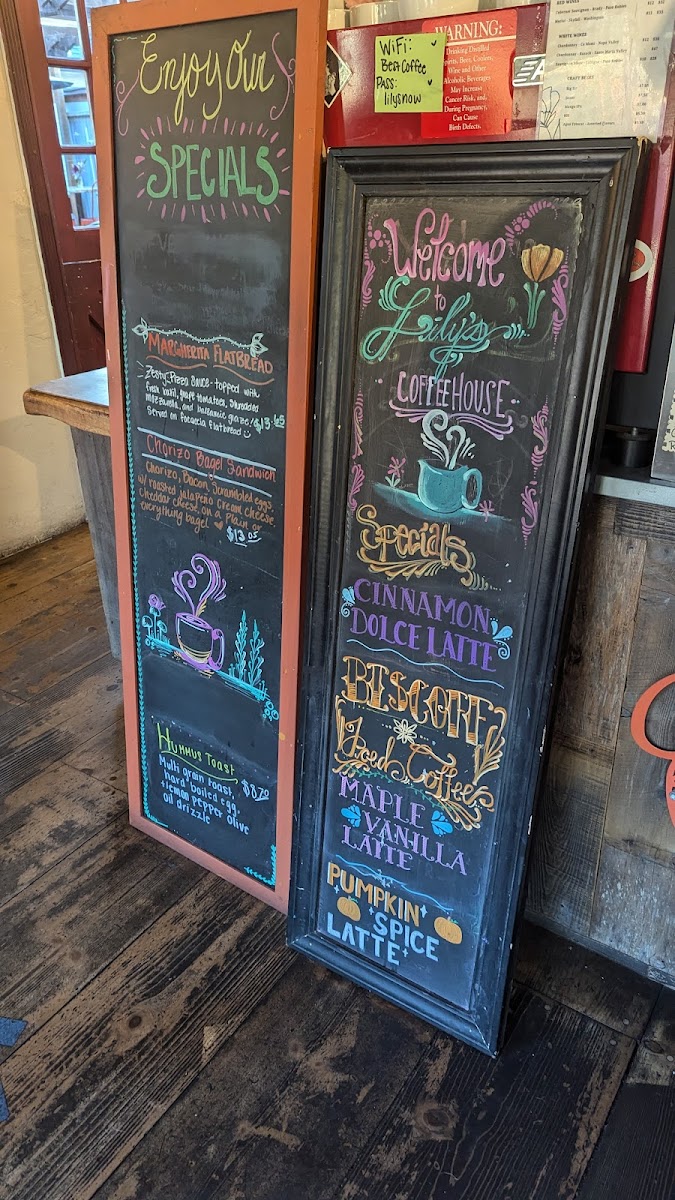 Enjoy Our
SPECIALS
MARGHERITA FLATBREAD
Zesty Pizza Sauce topped with
fresh basil, grape tomatoes, shredded
mozzarella, and balsamic glaze/$13.65
Served on focaccia flatbread
Chorizo Bagel Sandwich
Chorizo, Bacon, Scrambled eggs,
w/ roasted jalapeño Cream Cheese,
Cheddar cheese, on a Plain or
everything bagel $13.05
HUMMUS TOAST
Multi grain toast, $8.70
hard boiled egg,
+ lemon pepper olive
oil drizzle
WiFi:
Best Coffee
Pass:
lilysnow
WARNING:
Drinking Distilled
Spirits, Beer, Coolers,
Wine and Other
Alcoholic Beverages
May Increase
Cancer Risk, and,
During Pregnancy,
Can Cause
Birth Defects.
RED WINES
WHITE WINES
CRAFT BEERS
Welcome
to
Lily's
COFFEE HOUSE
Specials
CINNAMON
DOLCE LATTE
BISCOFF
Iced Coffee
MAPLE
VANILLA
LATTE
PUMPKIN
SPICE
LATTE